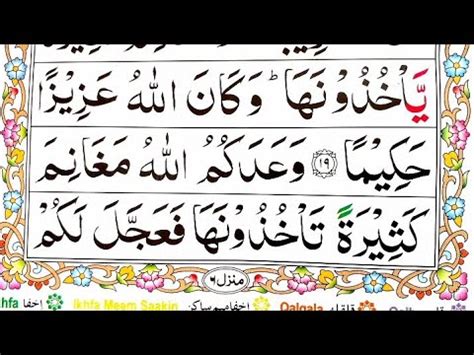 يَّاْخُذُوْنَهَا ؕ وَكَانَ اللّٰهُ عَزِيْزًا
حَكِيْمًا ﴿۱۹﴾ وَعَدَكُمُ اللّٰهُ مَغَانِمَ
كَثِيْرَةً تَاْخُذُوْنَهَا فَعَجَّلَ لَكُمْ
منزل ۶
khfa اخفا Ikhfa Meem Saakin اخفا میم ساکن Qalqala قلقله